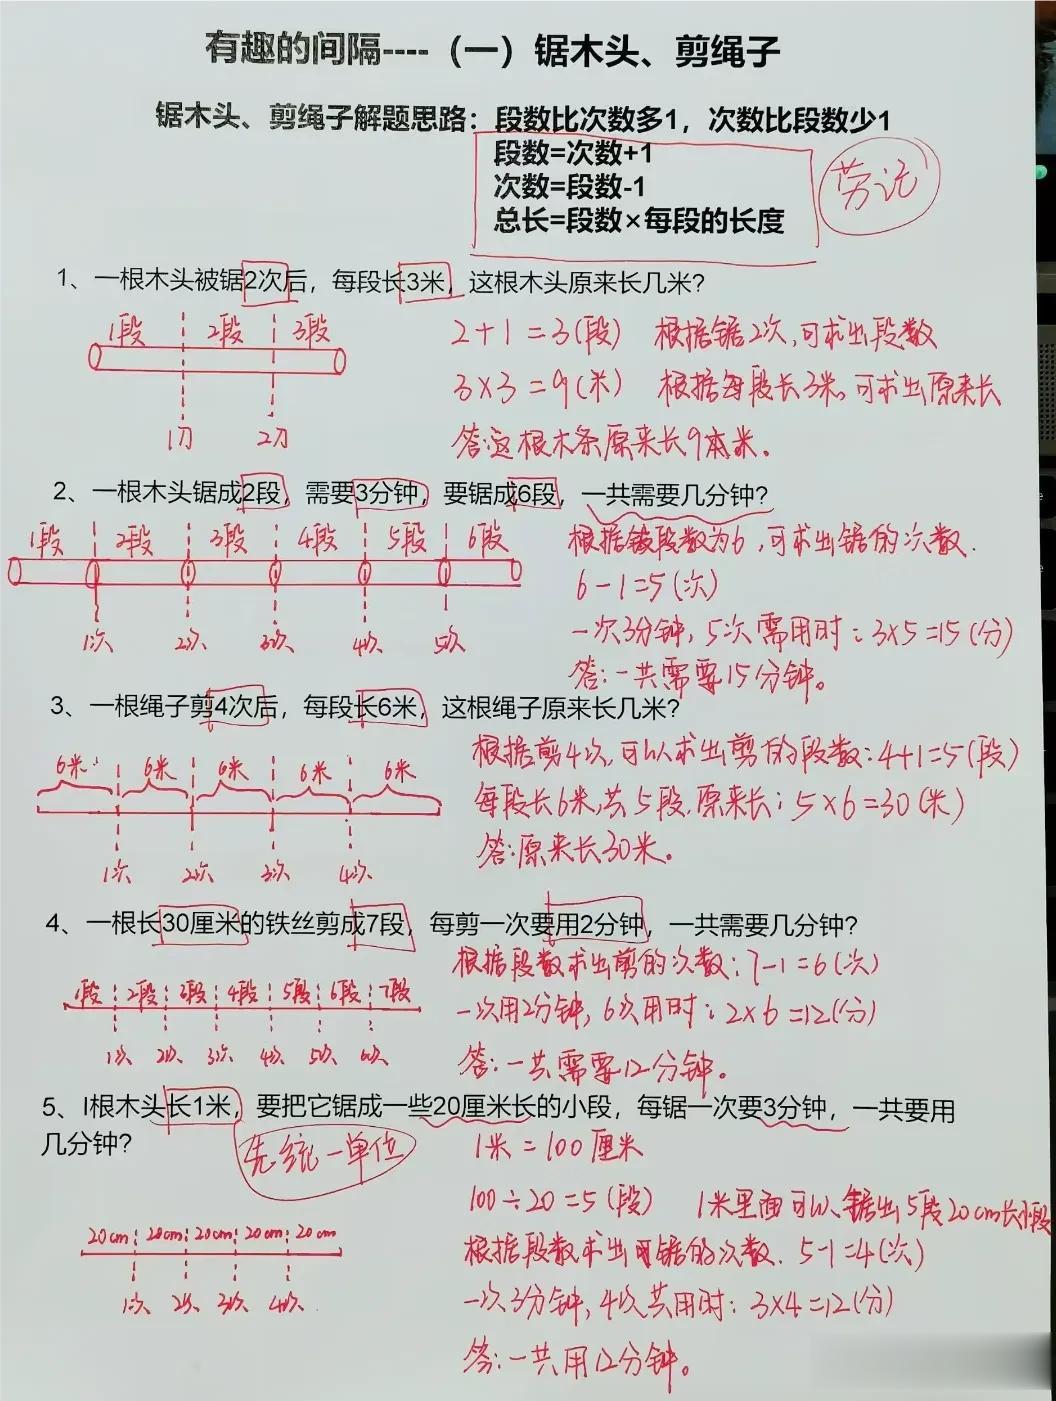 有趣的间隔----（一）锯木头、剪绳子
锯木头、剪绳子解题思路：段数比次数多1，次数比段数少1
段数=次数+1
次数=段数-1
总长=段数×每段的长度
劳记
1、一根木头被锯2次后，每段长3米，这根木头原来长几米？
1段 2段 3段
1刀 2刀
2+1=3(段) 根据锯2次,可求出段数
3×3=9(米) 根据每段长3米,可求出原来长
答:这根木条原来长9本米。
2、一根木头锯成2段，需要3分钟，要锯成6段，一共需要几分钟？
1段 2段 3段 4段 5段 6段
1次 2次 3次 4次 5次
根据段数为6,可求出锯的次数.
6-1=5(次)
一次3分钟,5次需用时:3×5=15(分)
答:一共需要15分钟。
3、一根绳子剪4次后，每段长6米，这根绳子原来长几米？
6米 6米 6米 6米 6米
1次 2次 3次 4次
根据剪4次,可以求出剪的段数:4+1=5(段)
每段长6米,共5段,原来长:5×6=30(米)
答:原来长30米。
4、一根长30厘米的铁丝剪成7段，每剪一次要用2分钟，一共需要几分钟？
1段 2段 3段 4段 5段 6段 7段
1次 2次 3次 4次 5次 6次
根据段数求出剪的次数:7-1=6(次)
一次用2分钟,6次用时:2×6=12(分)
答:一共需要12分钟。
5、I根木头长1米，要把它锯成一些20厘米长的小段，每锯一次要3分钟，一共要用
几分钟？
先统一单位
1米=100厘米
100÷20=5(段) 1米里面可以锯出5段20cm长小段
20cm 20cm 20cm 20cm 20cm
1次 2次 3次 4次
根据段数求出可锯的次数.5-1=4(次)
一次3分钟,4次共用时:3×4=12(分)
答:一共用12分钟。